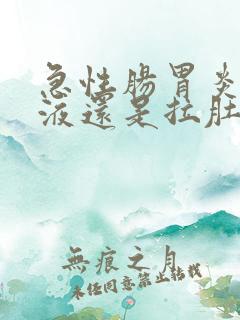 急性腸胃炎
液還是拉肚
無痕之月
未經同意禁止轉載